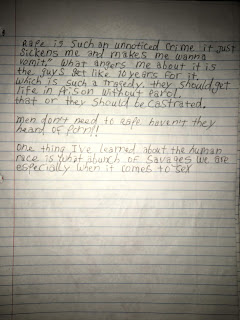 Rape is such an unnoticed crime it just
sickens me and makes me wanna
vomit," what angers me about it is
the guys get like 10 years for it,
which is such a tragedy, they should get
life in prison without parol,
that or they should be castrated.
men don't need to rape haven't they
heard of Porn!!
one thing I've learned about the human
race is what abunch of savages we are
especially when it comes to sex